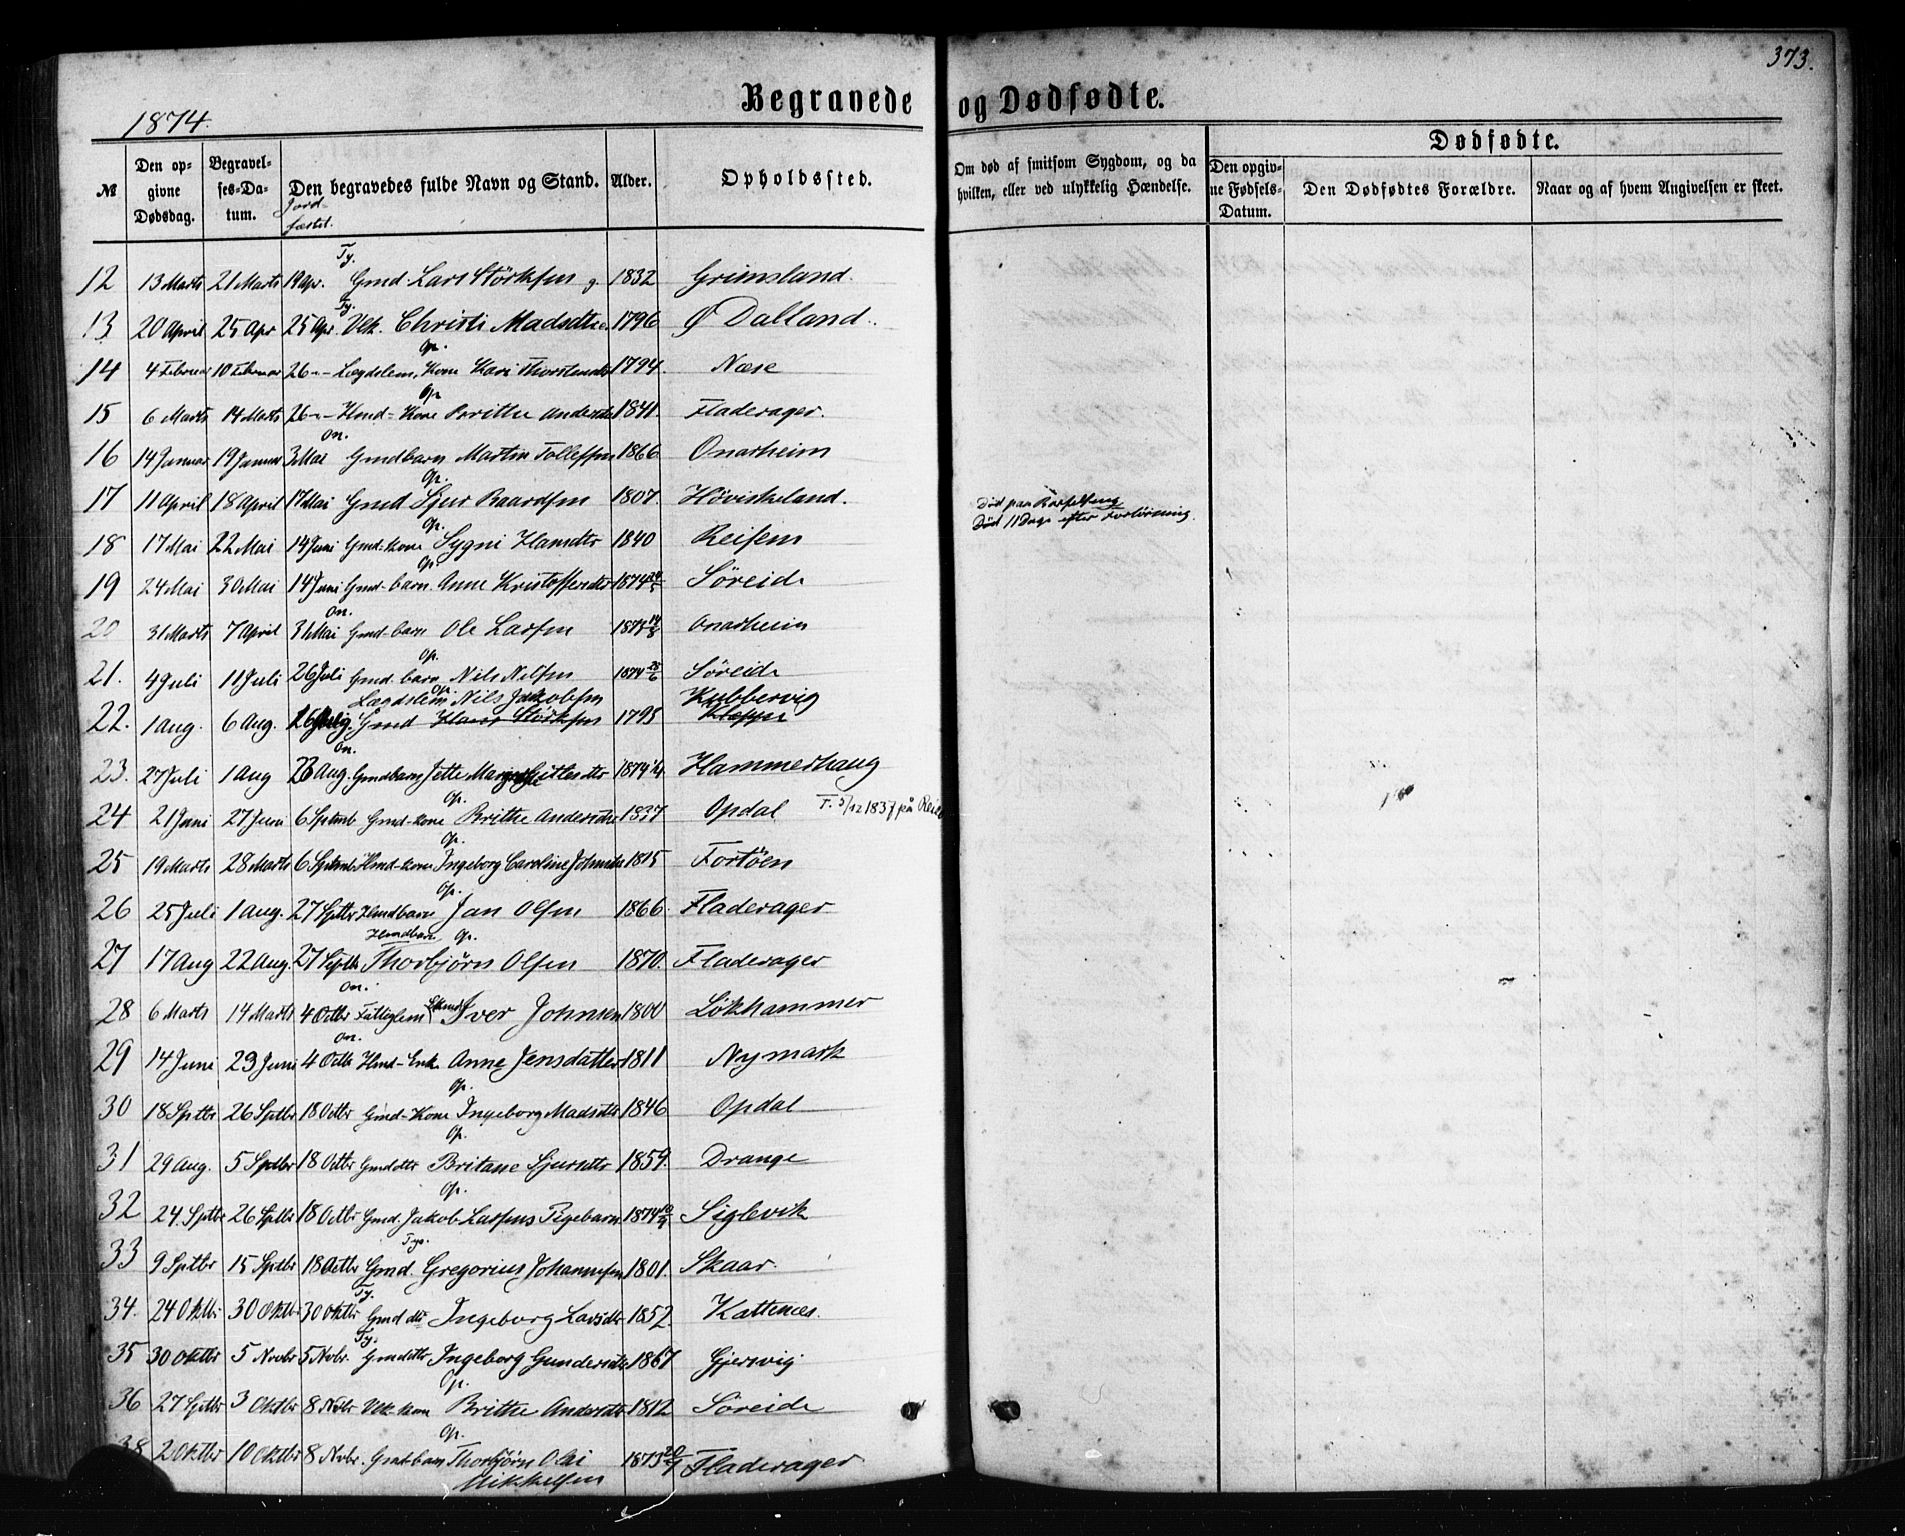 373.
1874.
Begravede og Dødfødte.
Dødfødte.
№ | Den opgivne Dødsdag. | Begravelses-Datum. | Den begravedes fulde Navn og Stand. | Alder. | Opholdssted. | Om død af smitsom Sygdom, og da hvilken, eller ved ulykkelig Hændelse. | Den opgivne Fødsels-Datum. | Den Dødfødtes Forældre. | Naar og af hvem Angivelsen er skeet.
Jordfæstet.
Ty.
12 13 Marts 21 Marts 19 Apr. Gmd. Lars Størksen g. 1832 Grimsland.
Ty.
13 20 April 25 Apr 25 Apr. Vek. Christi Madsdtr 1796 Ø Dalland.
Op.
14 4 Februar 10 Februar 26 -"- Lægdslem, Kone Kari Thorstensdtr 1794. Næse
Op.
15 6 Marts 14 Marts 26 -"- Hmd-Kone Brithe Andersdtr 1841. Fladerager.
On.
16 14 Januar 19 Januar 3 Mai Gmdbarn Martin Tollefsen 1866 Onarheim
Op.
17 11 April 18 April 17 Mai Gmd Sjur Baardsen 1807. Høviskeland.
Død paa Barselseng
Død 11 Dage efter Forløsning.
Op.
18 17 Mai 22 Mai 14 Juni Gmd-kone Sygni Hansdtr 1840 Reisem
Op.
19 24 Mai 30 Mai 14 Juni Gmd-barn Anne Kristoffersdtr 1874 Søreide
On.
20 31 Marts 7 April 31 Mai Gmd-barn Ole Larsen Onarheim
Op.
21. 4 Juli 11 Juli 26 Juli Gmd. barn Nils Nilsen 1874 25/6 Søreide
Op.
Lægdslem Nils Jakobsen Kubbervig
22. 1 Aug. 6 Aug. Gmd Hans Størksen 1795 Kleppe
On.
23. 27 Juli 1 Aug 23 Aug. Gmdbarn Jette 1874 Hammerhaug
Op.
24 21 Juni 27 Juni 6 Septemb Gmd-kone Brithe Andersdtr 1837 Opdal F. 5/12 1837 på
Op.
25 19 Marts 28 Marts 6 Septemb Hmd-kone Ingeborg Caroline Johnsdtr 1815 Fortøen
Op.
26 25 Juli 1 Aug. 27 Septbr Hmdbarn Jan Olsen 1866. Fladerager
Hmdbarn Op.
27 17 Aug 22 Aug. 27 Septb Thorbjørn Olsen 1870. Fladerager
On.
28 6 Marts 14 Marts 4 Octbr Fattiglem Iver Johnsen 1800 Lökhammer
On.
29 14 Juni 23 Juni 4 Octb Hmd-Enk. Anne Jensdatter 1811 Nymark
Op.
30 18 Septbr 26 Septbr 18 Octbr Gmd-Kone Ingeborg Madsdtr 1846 Opdal
Op.
31 29 Aug. 5 Septbr 18 Octbr Gmddtr Britane Sjursdtr 1859. Drange
Op.
32 24 Septbr 26 Septbr 18 Octbr Gmd. Jakob Larsens Pigebarn 1874 Siglevik
Tys.
33 9 Septbr 15 Septbr 18 Octbr Gmd. Gregorius Johannesen 1801. Skaar.
Ty.
34. 24 Oktbr 30 Oktbr 30 Oktbr Gmd dtr Ingeborg Larsdtr 1852. Kattenes.
Ty.
35 30 Oktbr 5 Novbr 5 Novbr. Gmddtr Ingeborg Gundersdtr 1867 Gjersvig
Op.
36 27 Septbr 3 Oktbr 8 Novbr Vek-kone Brithe Andersdtr 1812 Søreide
Op.
38 2 Oktbr 10 Oktbr 8 Novbr. Gmd-barn Thorbjørn Olai 1873 Fladerager
Mikkelsen